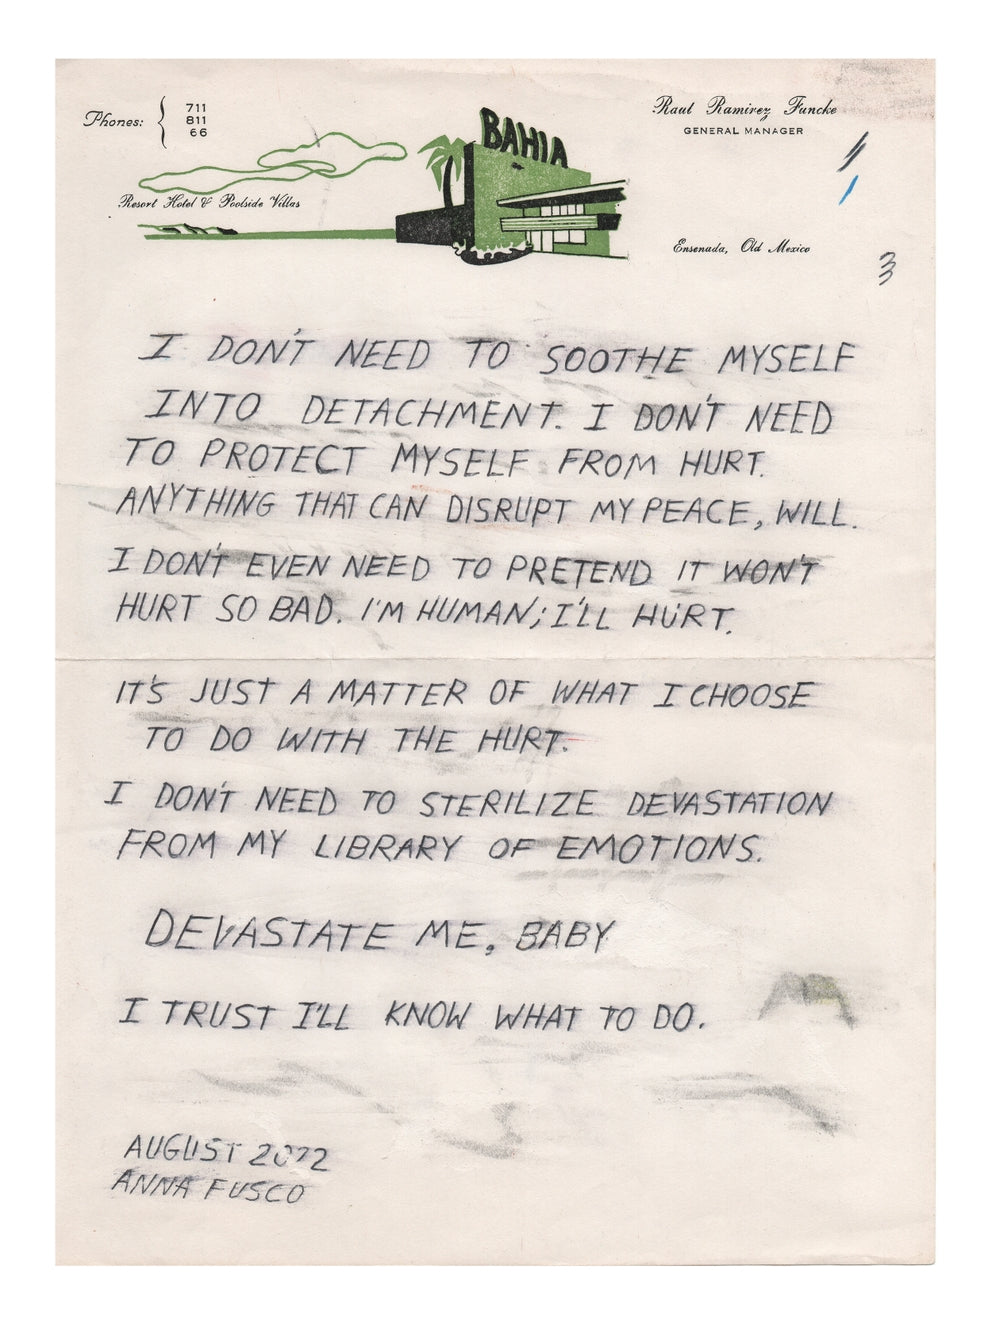 Phones: 711
811
66
BAHIA
Raul Ramirez Funcke
GENERAL MANAGER
Resort Hotel & Poolside Villas
Ensenada, Old Mexico
3
I DON'T NEED TO SOOTHE MYSELF
INTO DETACHMENT. I DON'T NEED
TO PROTECT MYSELF FROM HURT.
ANYTHING THAT CAN DISRUPT MY PEACE, WILL.
I DON'T EVEN NEED TO PRETEND IT WON'T
HURT SO BAD. I'M HUMAN; I'LL HURT.
IT'S JUST A MATTER OF WHAT I CHOOSE
TO DO WITH THE HURT.
I DON'T NEED TO STERILIZE DEVASTATION
FROM MY LIBRARY OF EMOTIONS.
DEVASTATE ME, BABY
I TRUST I'LL KNOW WHAT TO DO.
AUGUST 2022
ANNA FUSCO